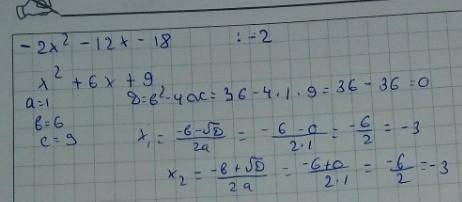 -2x² - 12x - 18 : -2
x² + 6x + 9
a=1 D=b²-4ac = 36 - 4·1·9 = 36 - 36 = 0
b=6
c=9 x₁ = (-b-√D)/2a = (-6-0)/(2·1) = -6/2 = -3
x₂ = (-b+√D)/2a = (-6+0)/(2·1) = -6/2 = -3